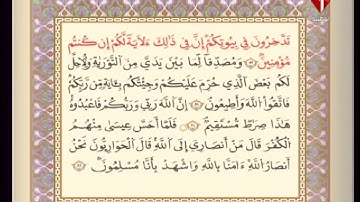 تَدَّخِرُونَ فِي بُيُوتِكُمْ إِنَّ فِي ذَٰلِكَ لَآيَةً لَّكُمْ إِن كُنتُم
مُّؤْمِنِينَ ۝٤٩ وَمُصَدِّقًا لِّمَا بَيْنَ يَدَيَّ مِنَ التَّوْرَاةِ وَلِأُحِلَّ
لَكُم بَعْضَ الَّذِي حُرِّمَ عَلَيْكُمْ وَجِئْتُكُم بِآيَةٍ مِّن رَّبِّكُمْ
فَاتَّقُوا اللَّهَ وَأَطِيعُونِ ۝٥٠ إِنَّ اللَّهَ رَبِّي وَرَبُّكُمْ فَاعْبُدُوهُ
هَٰذَا صِرَاطٌ مُّسْتَقِيمٌ ۝٥١ فَلَمَّا أَحَسَّ عِيسَىٰ مِنْهُمُ
الْكُفْرَ قَالَ مَنْ أَنصَارِي إِلَى اللَّهِ قَالَ الْحَوَارِيُّونَ نَحْنُ
أَنصَارُ اللَّهِ آمَنَّا بِاللَّهِ وَاشْهَدْ بِأَنَّا مُسْلِمُونَ ۝٥٢